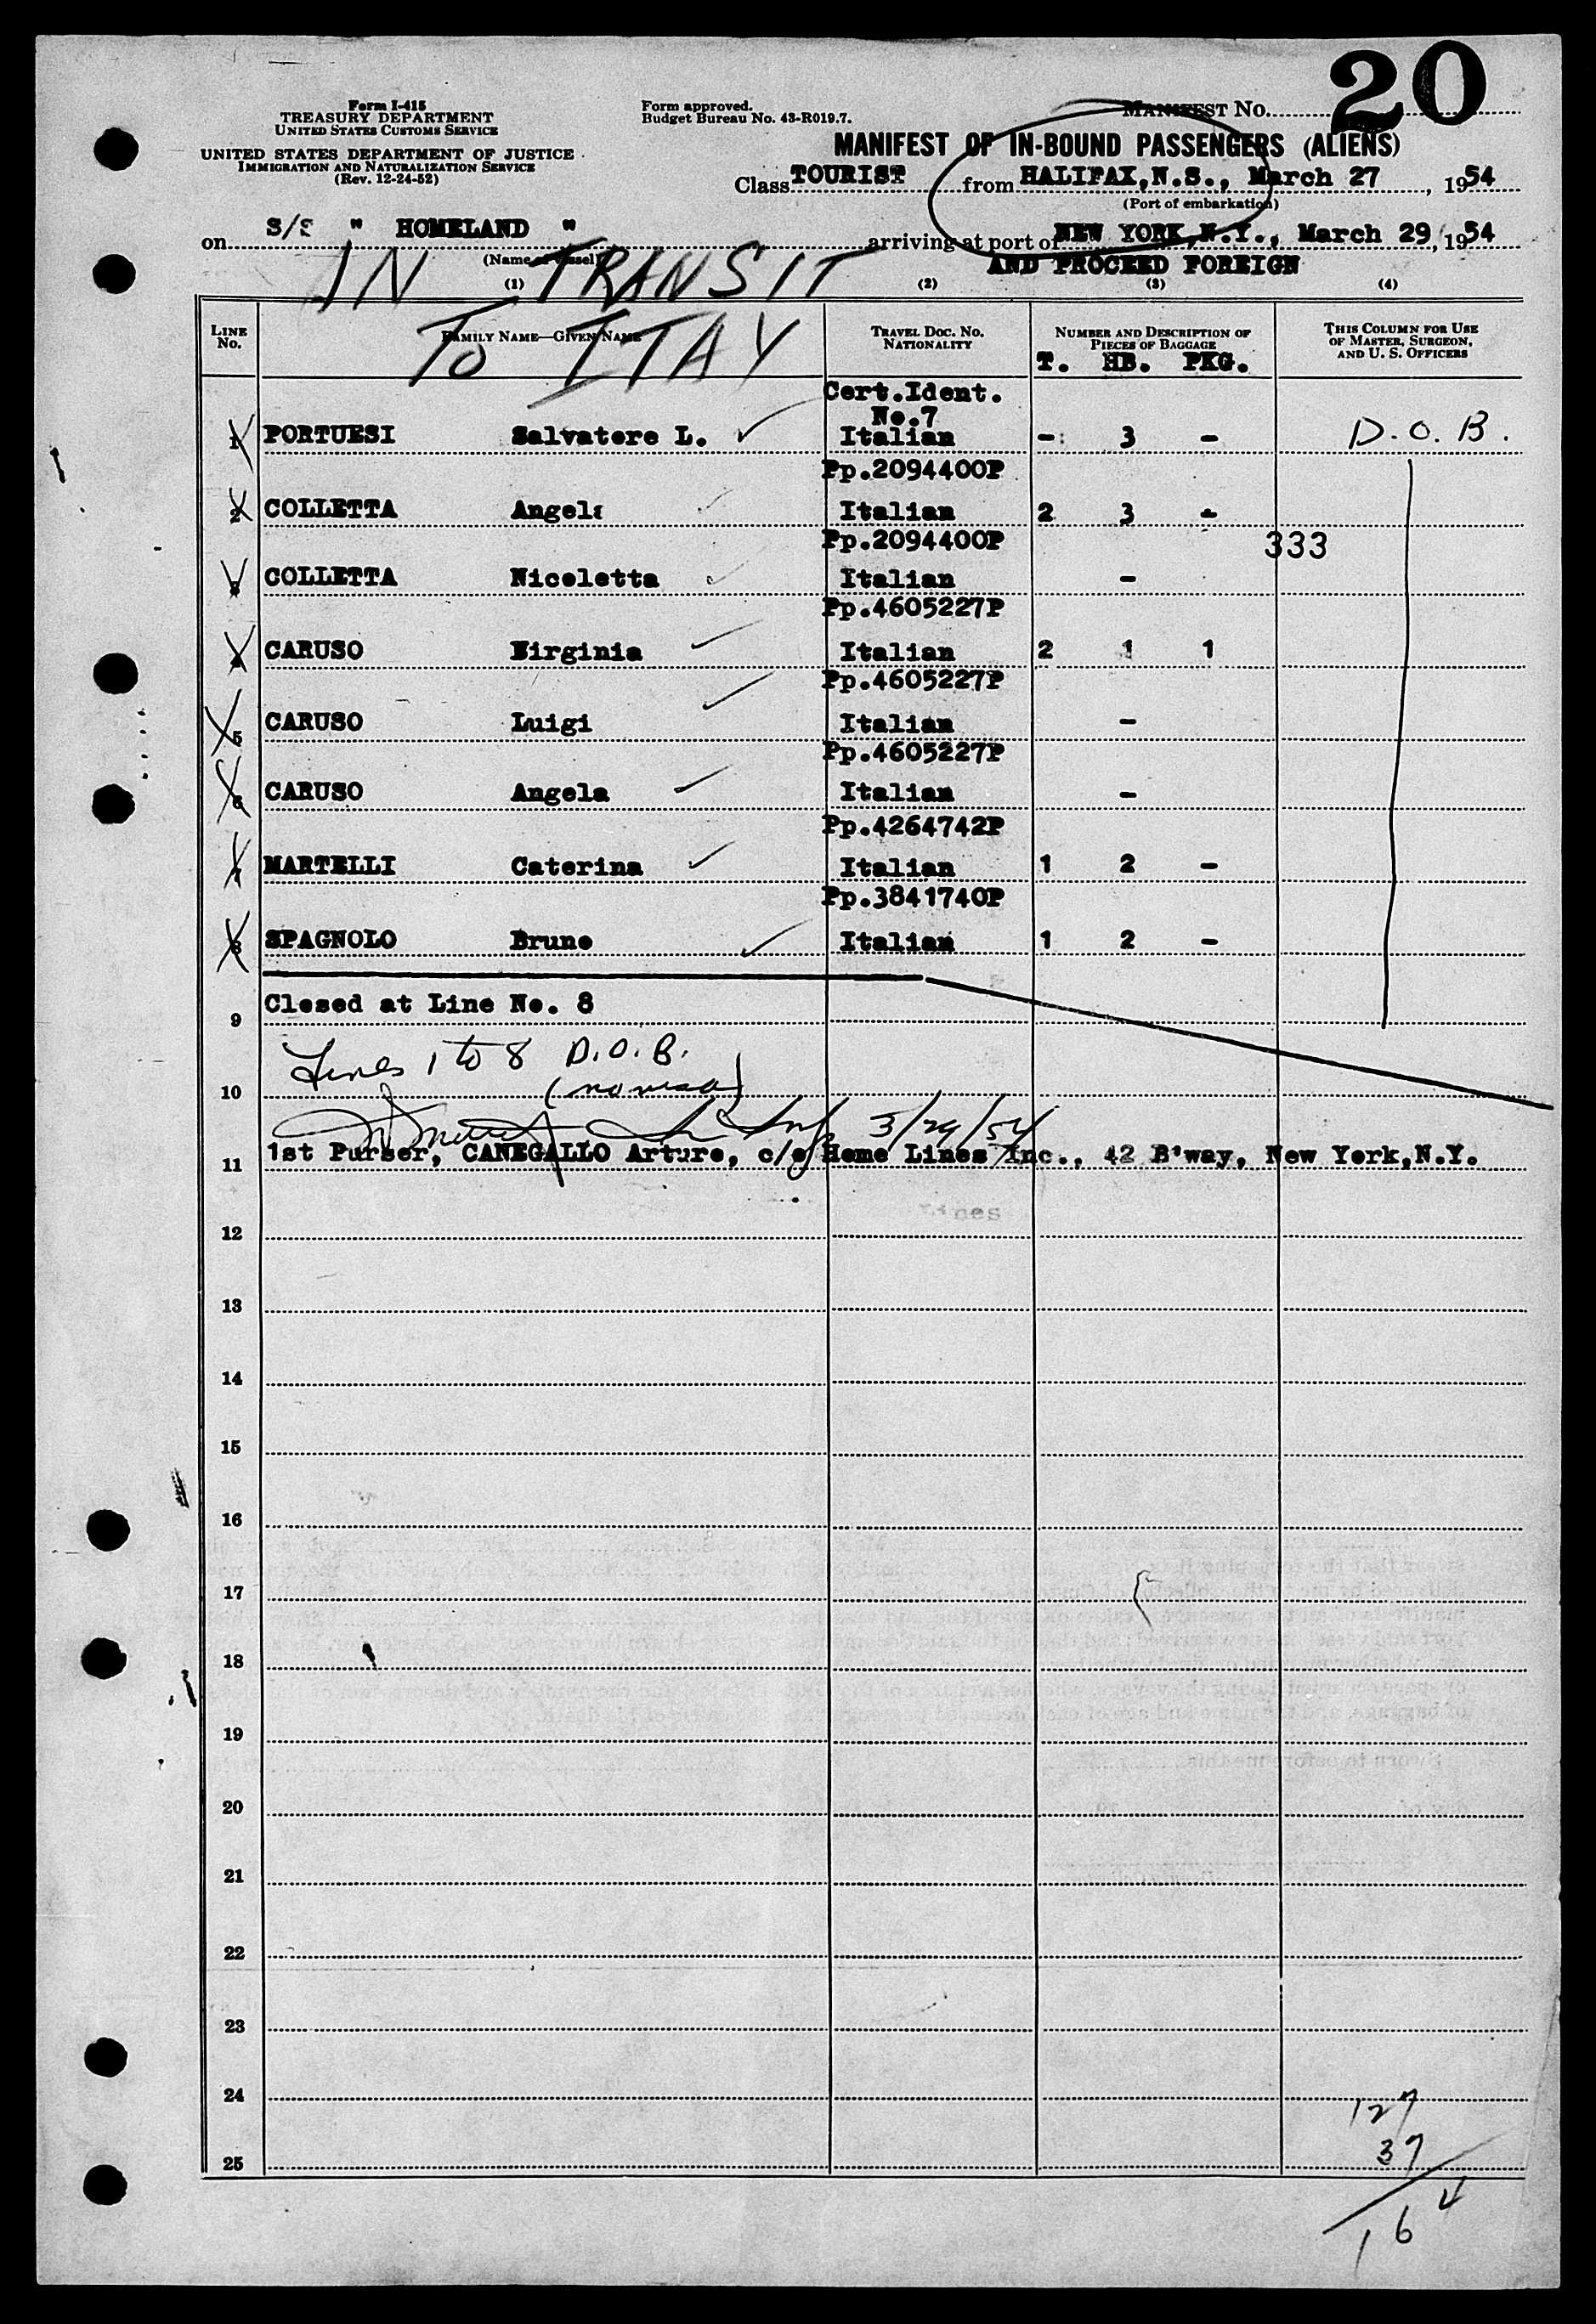 20
Form I-415
TREASURY DEPARTMENT
UNITED STATES CUSTOMS SERVICE
UNITED STATES DEPARTMENT OF JUSTICE
IMMIGRATION AND NATURALIZATION SERVICE
(Rev. 12-24-52)
Form approved.
Budget Bureau No. 43-R019.7.
MANIFEST No.
MANIFEST OF IN-BOUND PASSENGERS (ALIENS)
Class TOURIST from HALIFAX,N.S., March 27, 1954
(Port of embarkation)
on S/S " HOMELAND " arriving at port of NEW YORK,N.Y., March 29, 1954
(Name of vessel)
AND PROCEED FOREIGN
IN TRANSIT
TO ITAY
(1) (2) (3) (4)
LINE No. FAMILY NAME—GIVEN NAME TRAVEL DOC. NO. NATIONALITY NUMBER AND DESCRIPTION OF PIECES OF BAGGAGE THIS COLUMN FOR USE OF MASTER, SURGEON, AND U. S. OFFICERS
T. HB. PKG.
Cert.Ident.
No.7
1 PORTUESI Salvatore L. Italian - 3 - D.O.B.
Pp.2094400P
2 COLLETTA Angela Italian 2 3 -
Pp.2094400P 333
3 COLLETTA Nicoletta Italian -
Pp.4605227P
4 CARUSO Virginia Italian 2 1 1
Pp.4605227P
5 CARUSO Luigi Italian -
Pp.4605227P
6 CARUSO Angela Italian -
Pp.4264742P
7 MARTELLI Caterina Italian 1 2 -
Pp.3841740P
8 SPAGNOLO Bruno Italian 1 2 -
9 Closed at Line No. 8
Lines 1 to 8 D.O.B.
10 (no visa)
3/29/54
11 1st Purser, CANEGALLO Arturo, c/o Home Lines Inc., 42 B'way, New York,N.Y.
Lines
12
13
14
15
16
17
18
19
20
21
22
23
24
127
25 37
164